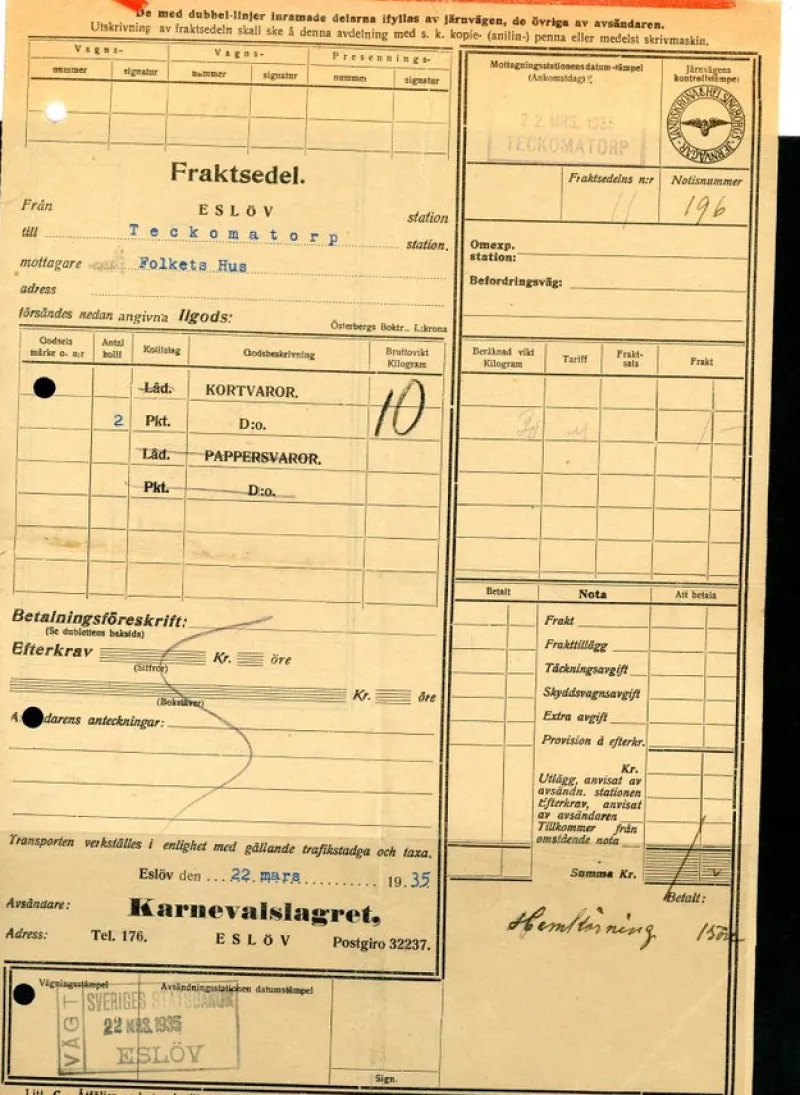 De med dubbel-linjer inramade delarna ifyllas av järnvägen, de övriga av avsändaren.
Utskrivning av fraktsedeln skall ske å denna avdelning med s. k. kopie- (anilin-) penna eller medelst skrivmaskin.
Vagns- Vagns- Presennings-
nummer signatur nummer signatur nummer signatur
Fraktsedel.
Från ESLÖV station
till Teckomatorp station.
mottagare Folkets Hus
adress
försändes nedan angivna Ilgods:
Österbergs Boktr., L:krona
Godsets märke o. n:r Antal kolli Kollislag Godsbeskrivning Bruttovikt Kilogram
Låd. KORTVAROR. 10
2 Pkt. D:o.
Låd. PAPPERSVAROR.
Pkt. D:o.
Betalningsföreskrift:
(Se dublettens baksida)
Efterkrav Kr. öre
(Siffror)
Kr. öre
(Bokstäver)
A darens anteckningar:
Transporten verkställes i enlighet med gällande trafikstadga och taxa.
Eslöv den 22 mars 1935
Avsändare: Karnevalslagret,
Adress: Tel. 176. ESLÖV Postgiro 32237.
Vägningsstämpel Avsändningsstationen datumstämpel
VÄGT
SVERIGES STATSBANOR
22 MRS. 1935
ESLÖV
Sign.
Mottagningsstationens datumstämpel
(Ankomstdag)
22 MRS. 1935
TECKOMATORP
Järnvägens
kontrollstämpel
LANDSKRONA & HELSINGBORGS JERNVÄGAR
Fraktsedelns n:r Notisnummer
11 196
Omexp.
station:
Befordringsväg:
Beräknad vikt Kilogram Tariff Frakt-sats Frakt
Betalt Nota Att betala
Frakt
Frakttillägg
Täckningsavgift
Skyddsvagnsavgift
Extra avgift
Provision å efterkr.
Kr.
Utlägg, anvisat av
avsändn. stationen
Efterkrav, anvisat
av avsändaren
Tillkommer från
omstående nota
Summa Kr.
Betalt:
Hemkörning 15öre